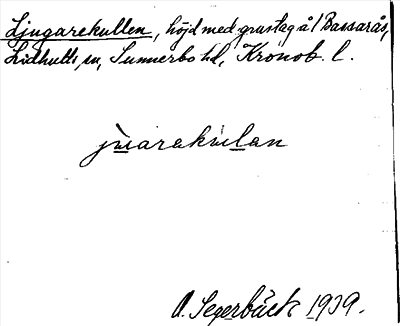 Ljugarekullen, höjd med grustag å 1 Bassarås,
Lidhults sn, Sunnerbo hd, Kronob. l.
jùarakùlan
A. Segerbäck 1939.